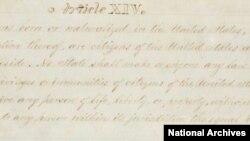 Article XIV.
born or naturalized in the United States,
thereof, are citizens of the United States a
reside. No State shall make or enforce any law
privileges or immunities of citizens of the United
any person of life, liberty, or property, witho
to any person within its jurisdiction the equal
National Archives